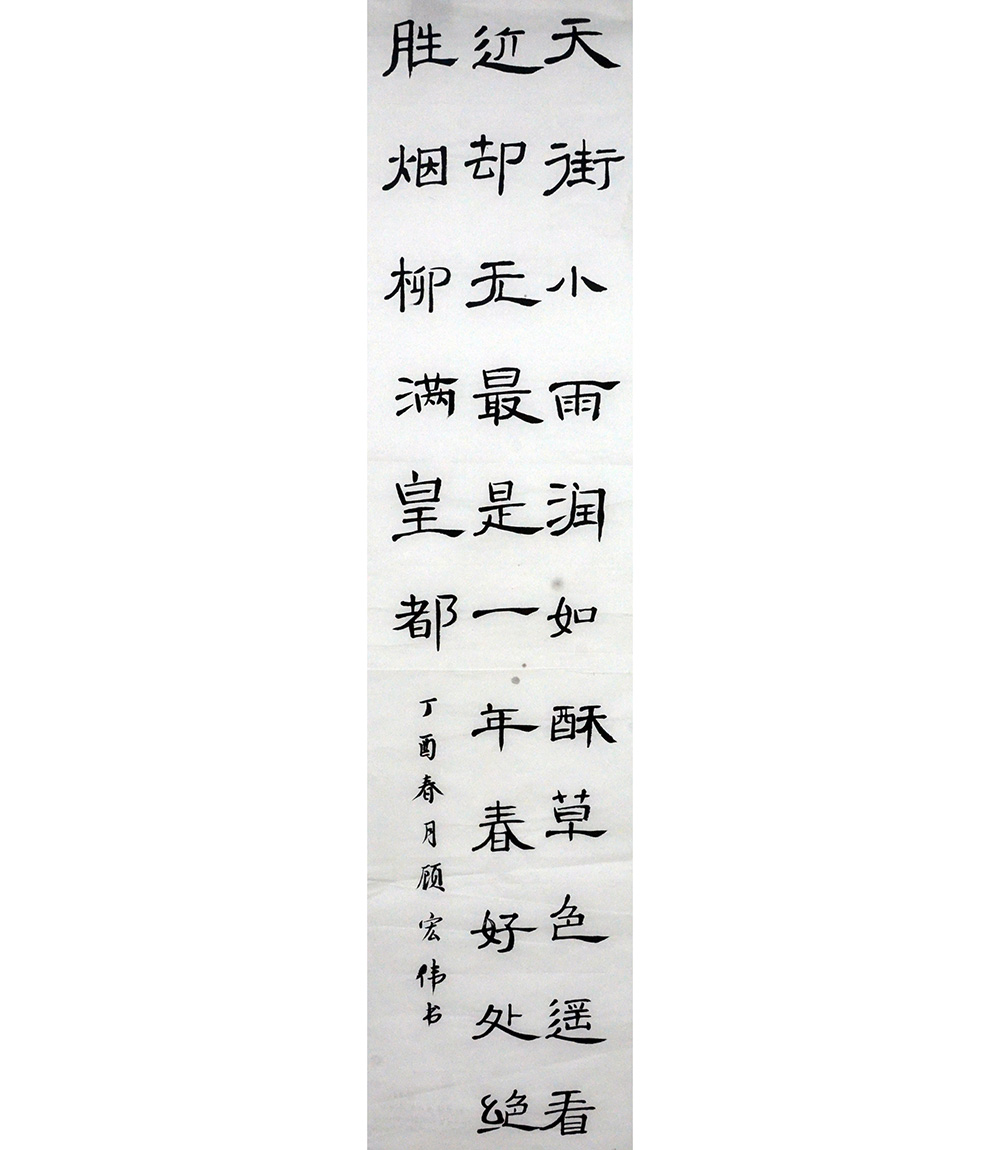 天街小雨润如酥草色遥看
近却无最是一年春好处绝
胜烟柳满皇都
丁酉春月顾宏伟书